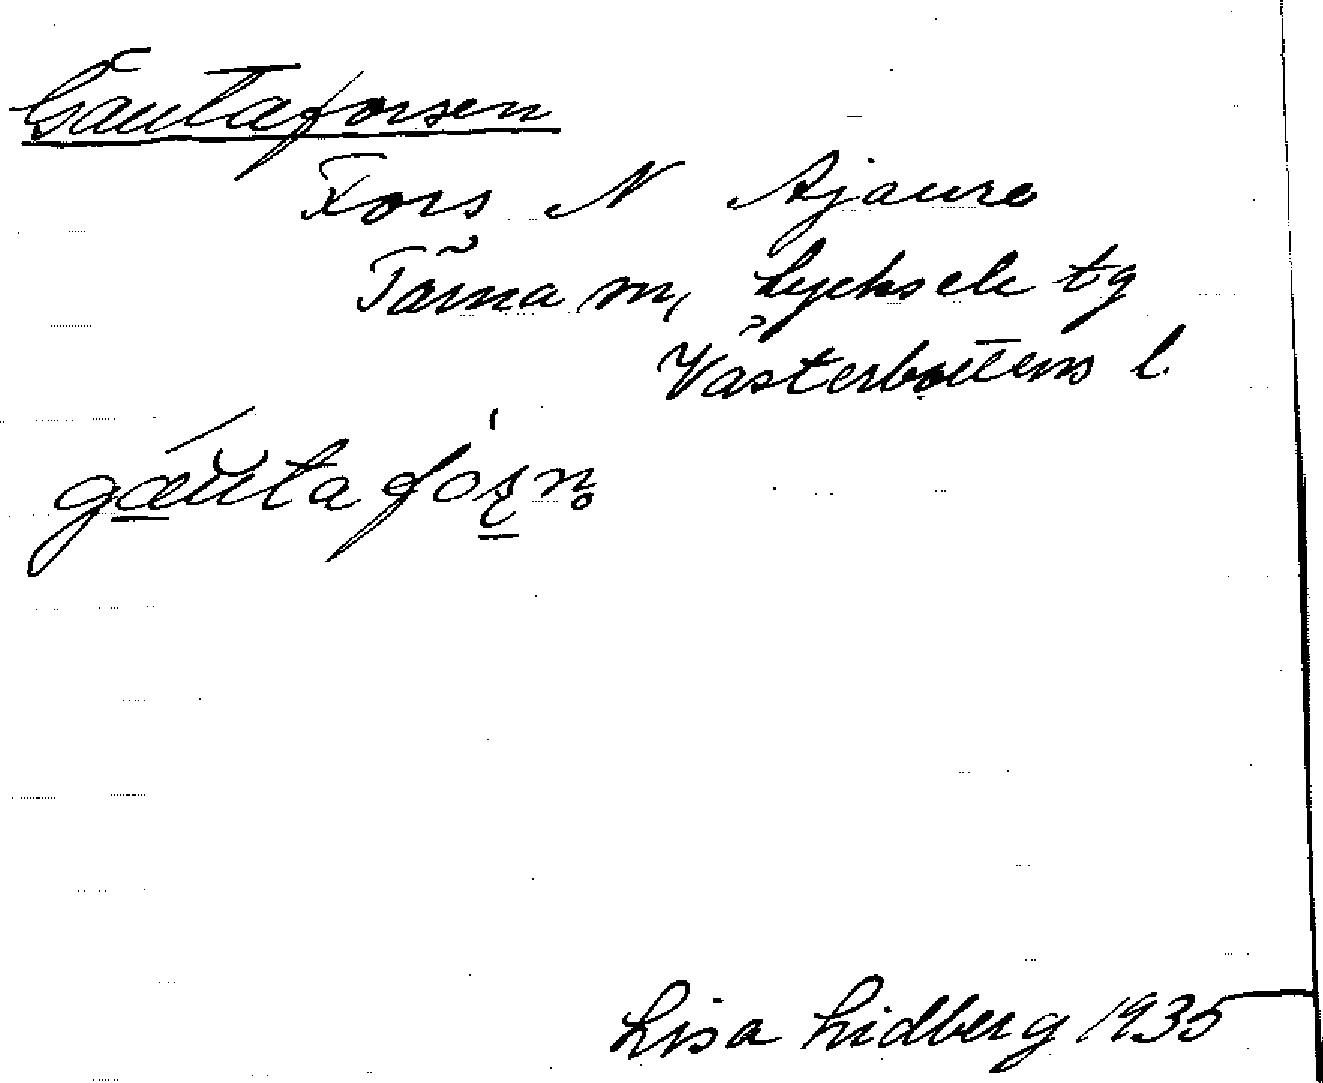 Gautaforsen
Fors N Ajaure
Tärna sn, Lycksele tg
Västerbottens l.
Lisa Lidberg 1935